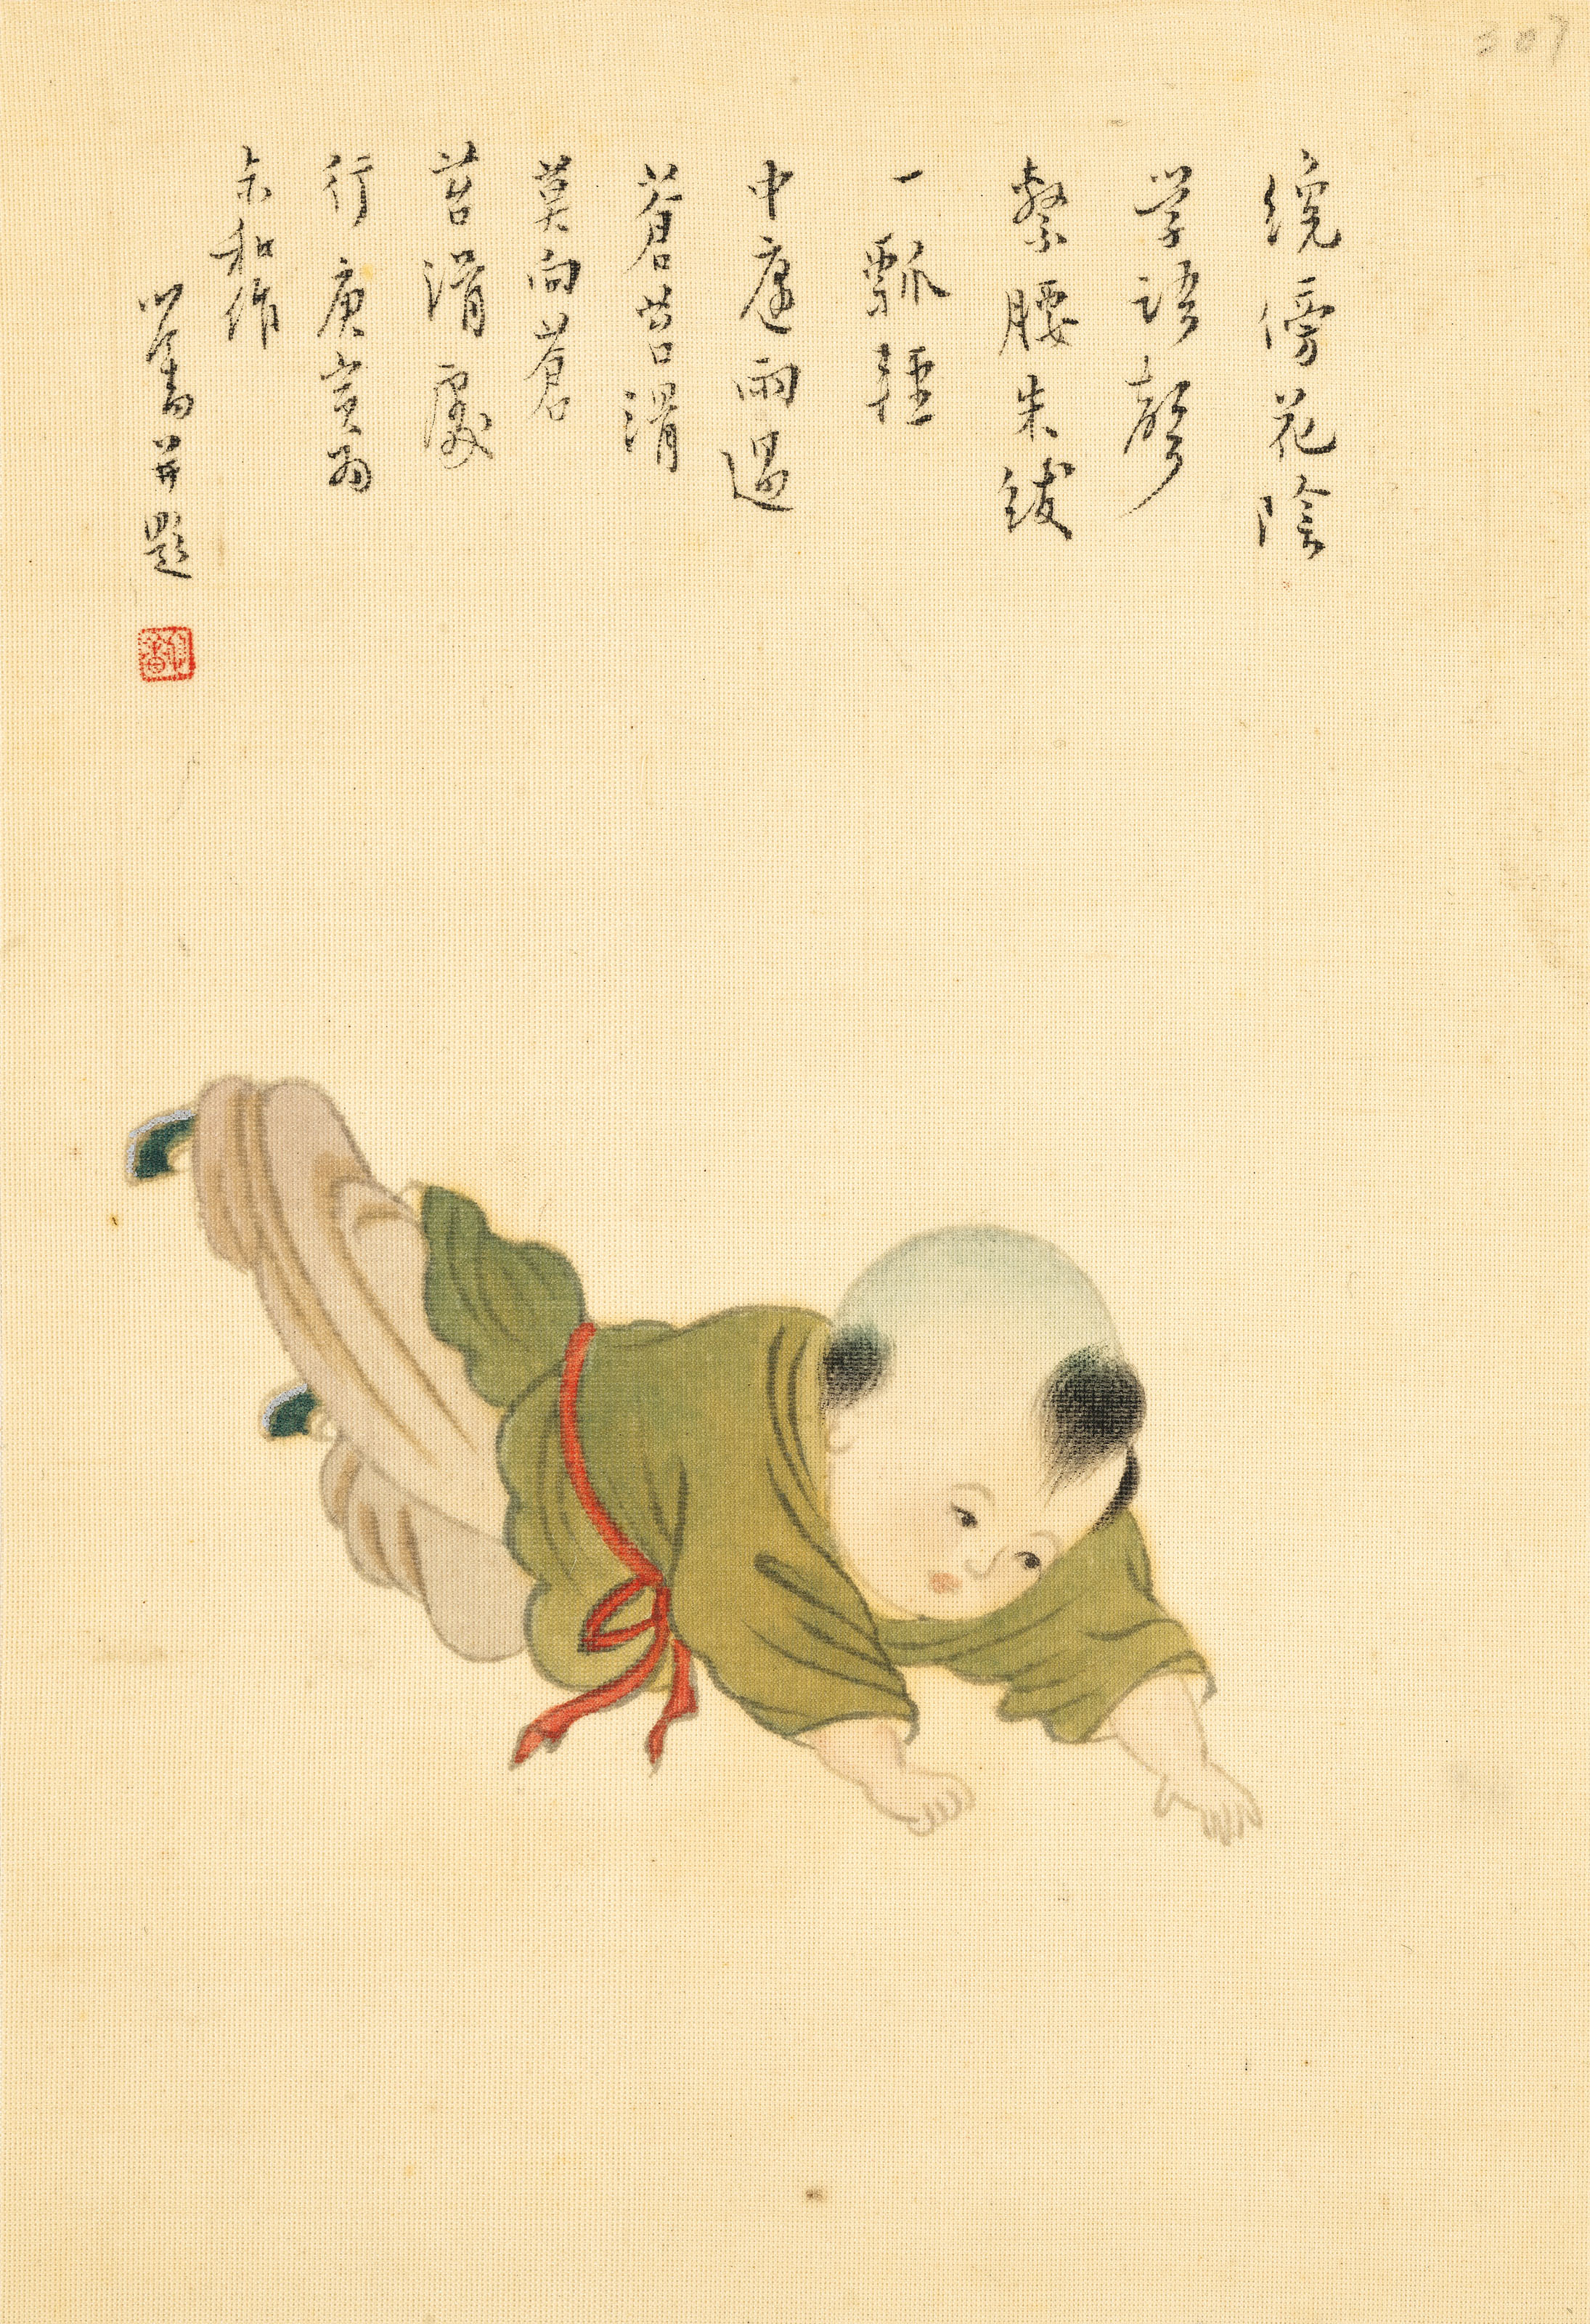 307
纔傍花陰
学語聲
繫腰朱紱
一瓢輕
中庭雨過
蒼苔滑
莫向蒼
苔滑處
行庚寅為
尓和作
心畬并題